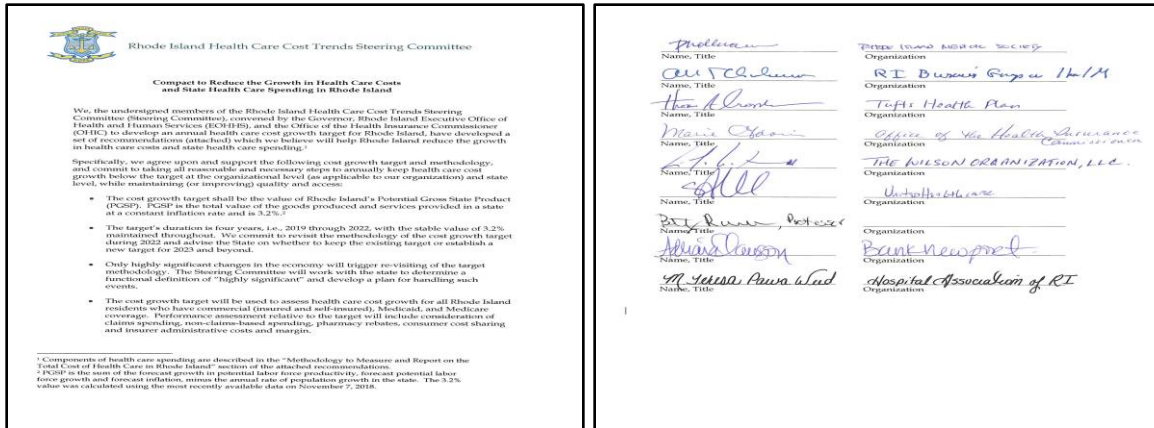 Rhode Island Health Care Cost Trends Steering Committee
Compact to Reduce the Growth in Health Care Costs
and State Health Care Spending in Rhode Island
We, the undersigned members of the Rhode Island Health Care Cost Trends Steering
Committee (Steering Committee), convened by the Governor, Rhode Island Executive Office of
Health and Human Services (EOHHS), and the Office of the Health Insurance Commissioner
(OHIC) to develop an annual health care cost growth target for Rhode Island, have developed a
set of recommendations (attached) which we believe will help Rhode Island reduce the growth
in health care costs and state health care spending.¹
Specifically, we agree upon and support the following cost growth target and methodology,
and commit to taking all reasonable and necessary steps to annually keep health care cost
growth below the target at the organizational level (as applicable to our organization) and state
level, while maintaining (or improving) quality and access:
• The cost growth target shall be the value of Rhode Island's Potential Gross State Product
(PGSP). PGSP is the total value of the goods produced and services provided in a state
at a constant inflation rate and is 3.2%.²
• The target's duration is four years, i.e., 2019 through 2022, with the stable value of 3.2%
maintained throughout. We commit to revisit the methodology of the cost growth target
during 2022 and advise the State on whether to keep the existing target or establish a
new target for 2023 and beyond.
• Only highly significant changes in the economy will trigger re-visiting of the target
methodology. The Steering Committee will work with the state to determine a
functional definition of "highly significant" and develop a plan for handling such
events.
• The cost growth target will be used to assess health care cost growth for all Rhode Island
residents who have commercial (insured and self-insured), Medicaid, and Medicare
coverage. Performance assessment relative to the target will include consideration of
claims spending, non-claims-based spending, pharmacy rebates, consumer cost sharing
and insurer administrative costs and margin.
¹ Components of health care spending are described in the "Methodology to Measure and Report on the
Total Cost of Health Care in Rhode Island" section of the attached recommendations.
² PGSP is the sum of the forecast growth in potential labor force productivity, forecast potential labor
force growth and forecast inflation, minus the annual rate of population growth in the state. The 3.2%
value was calculated using the most recently available data on November 7, 2018.
RHODE ISLAND MEDICAL SOCIETY
Name, Title Organization
RI Business Group
Name, Title Organization
Tufts Health Plan
Name, Title Organization
Marie Office of the Health Insurance
Commissioner
Name, Title Organization
THE WILSON ORGANIZATION, LLC.
Name, Title Organization
UnitedHealthcare
Name, Title Organization
, Professor
Name, Title Organization
BankNewport
Name, Title Organization
M Teresa Paiva Weed Hospital Association of RI
Name, Title Organization